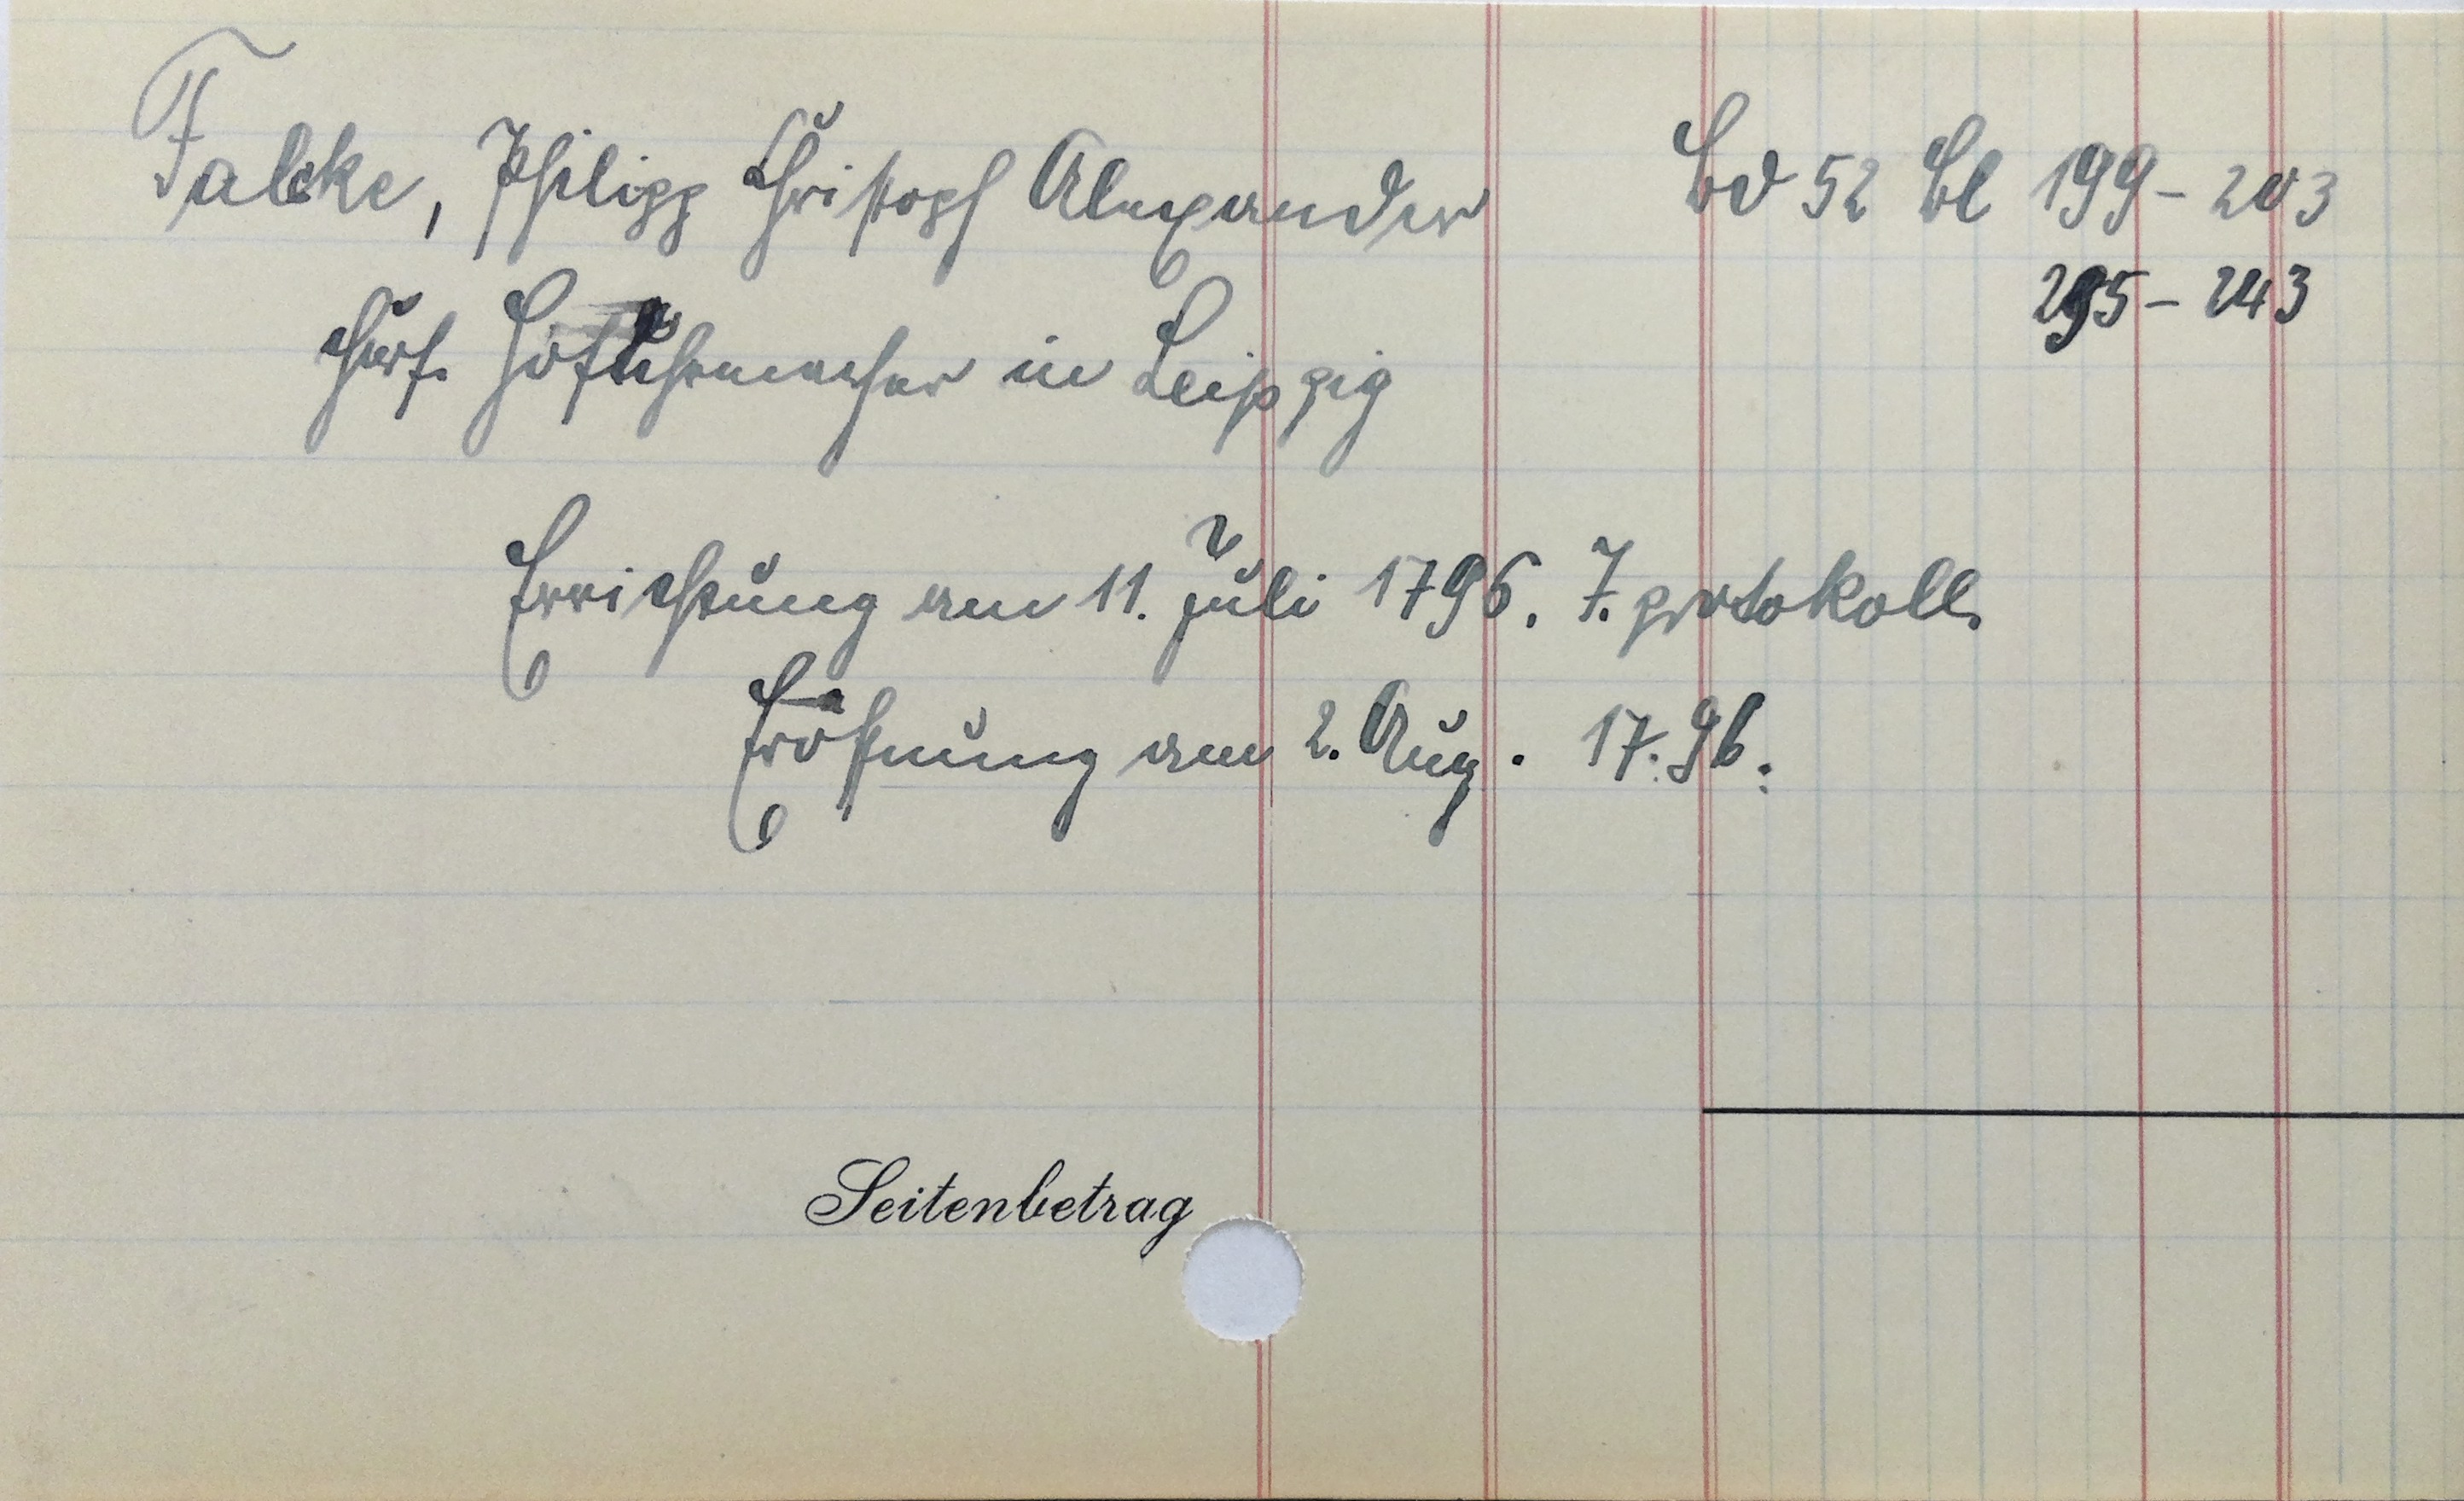 Falcke, Philipp Christoph Alexander Bd 52 Bl 199-203
295-243
churf. Hofuhrmacher in Leipzig
Errichtung am 11. Juli 1796. T. protokoll.
Eröfnung am 2. Aug. 17.96.
Seitenbetrag